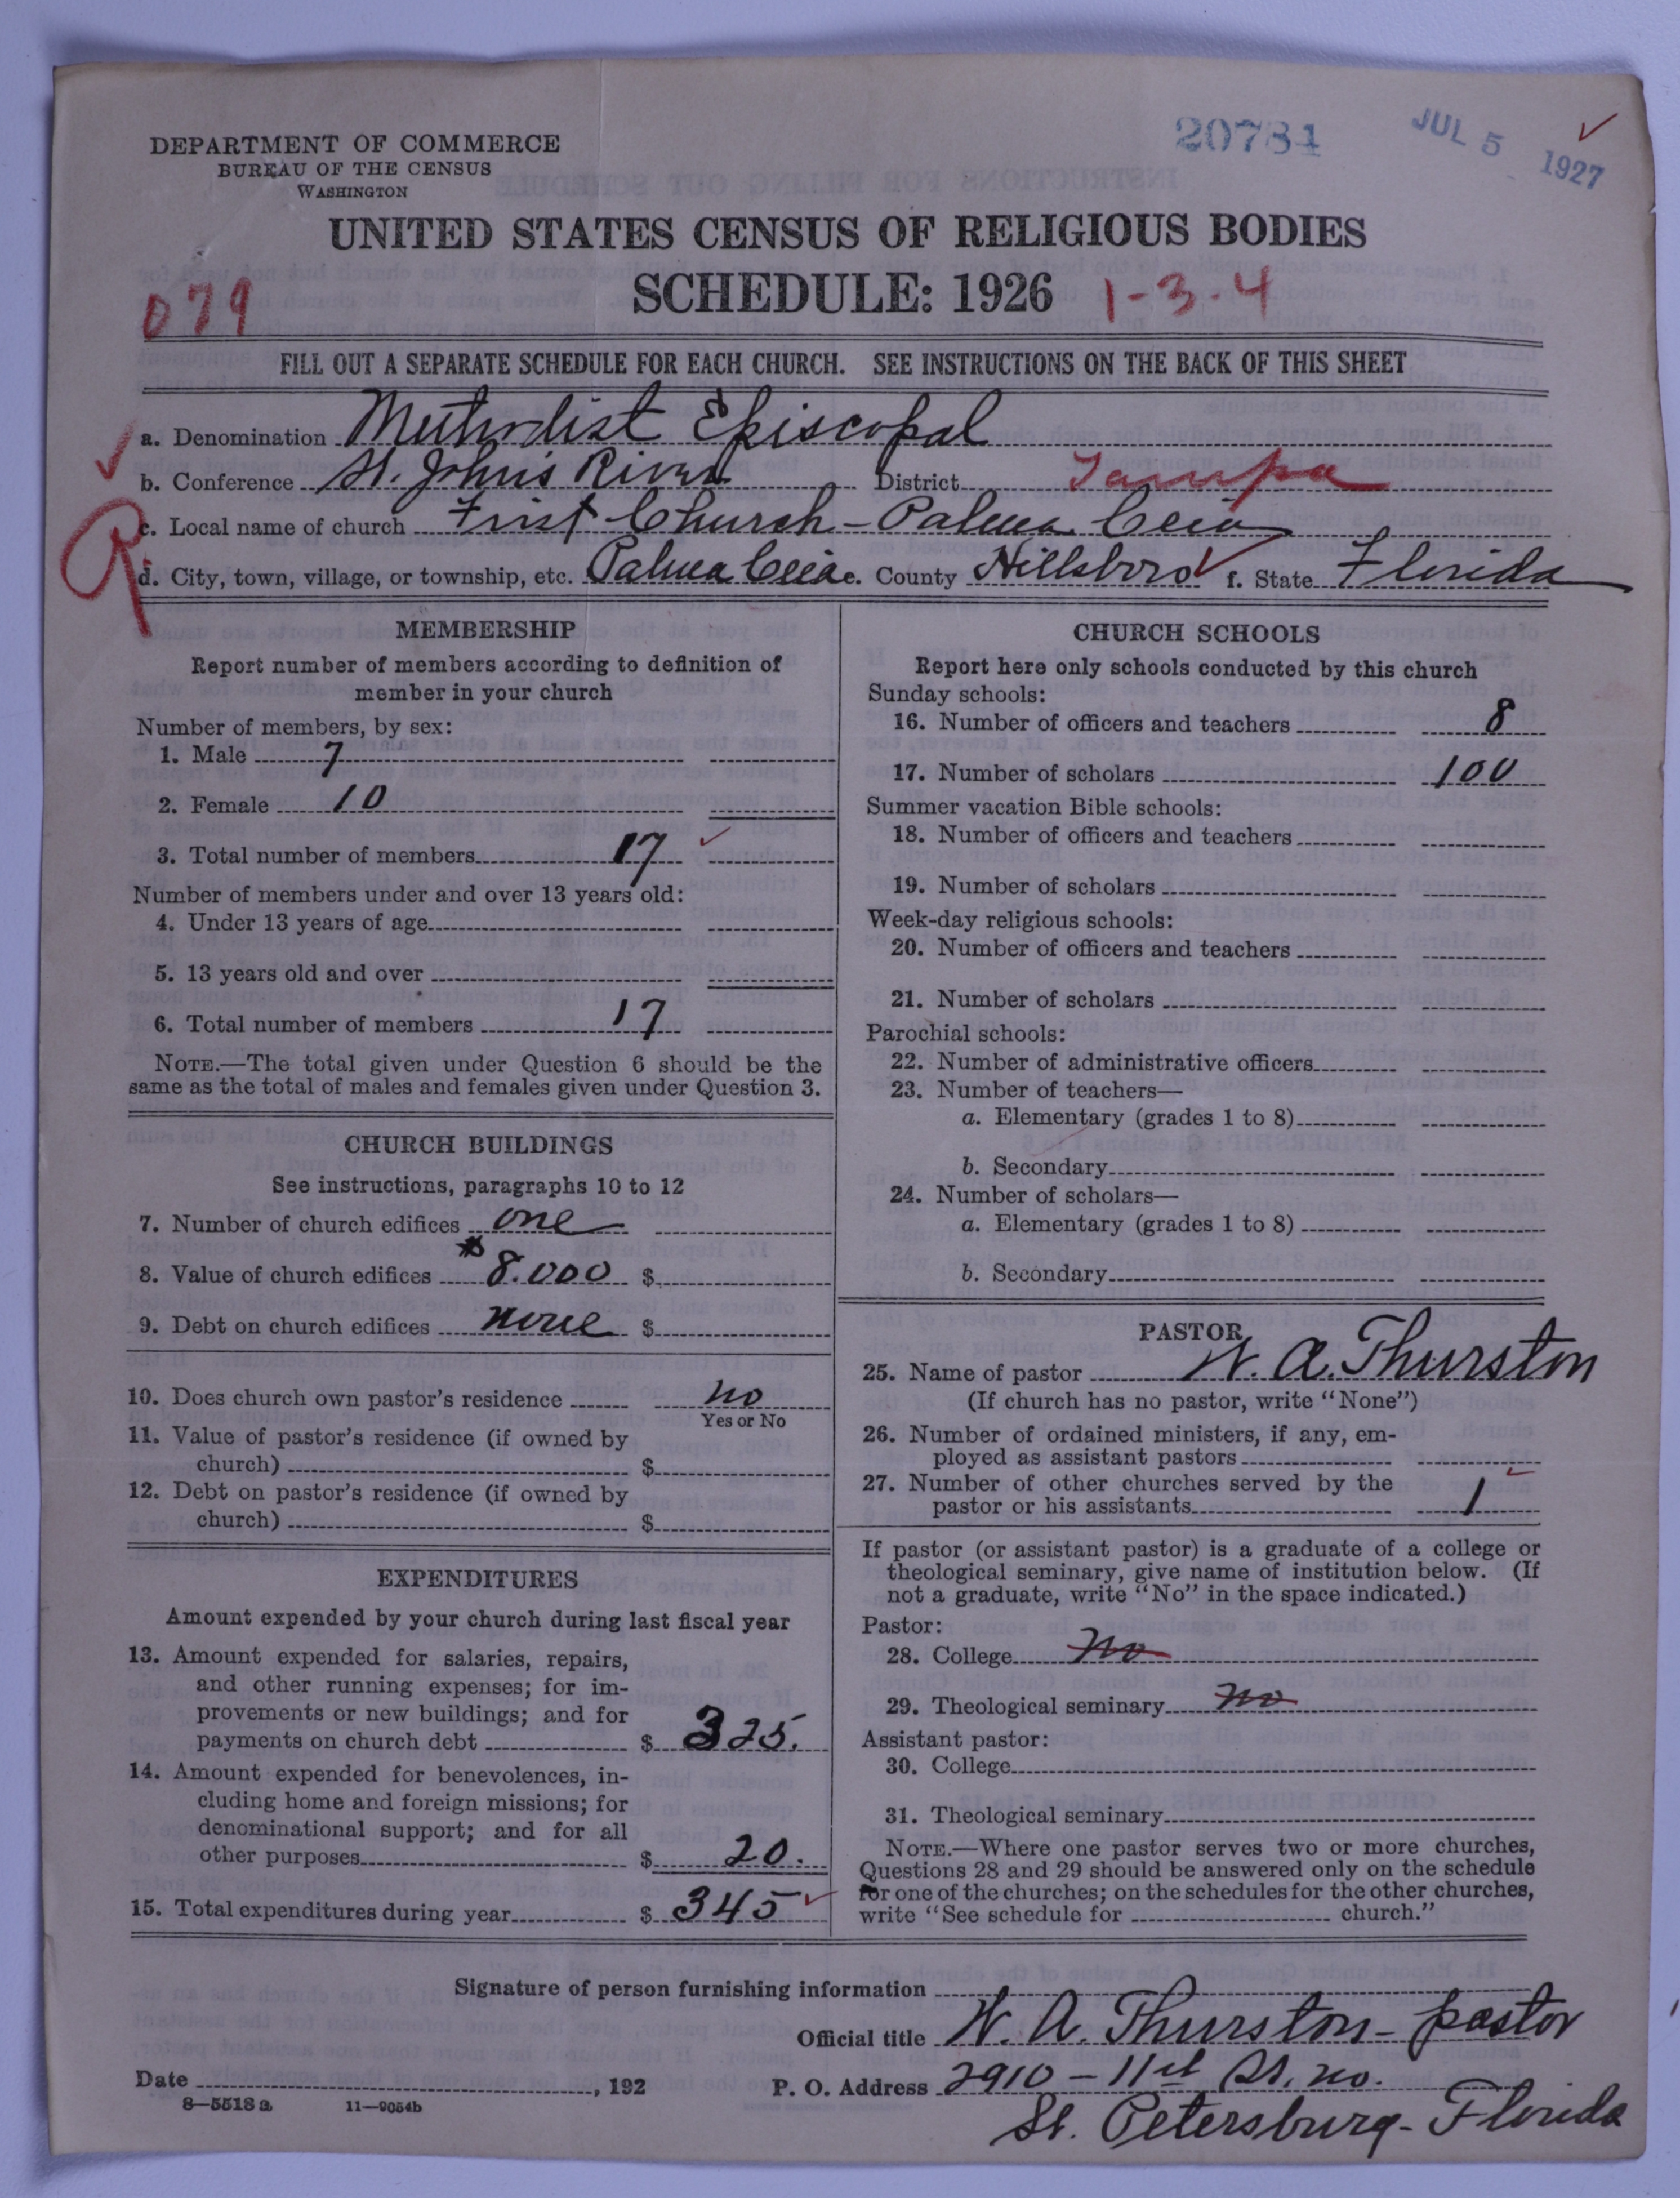 DEPARTMENT OF COMMERCE
BUREAU OF THE CENSUS
WASHINGTON
20784
JUL 5 1927
UNITED STATES CENSUS OF RELIGIOUS BODIES
SCHEDULE: 1926
079
1-3-4
FILL OUT A SEPARATE SCHEDULE FOR EACH CHURCH. SEE INSTRUCTIONS ON THE BACK OF THIS SHEET
a. Denomination Methodist Episcopal
b. Conference St. John's River District Tampa
c. Local name of church First Church - Palma Ceia
R
d. City, town, village, or township, etc. Palma Ceia e. County Hillsboro f. State Florida
MEMBERSHIP
Report number of members according to definition of
member in your church
Number of members, by sex:
1. Male 7
2. Female 10
3. Total number of members 17
Number of members under and over 13 years old:
4. Under 13 years of age
5. 13 years old and over
6. Total number of members 17
NOTE.—The total given under Question 6 should be the
same as the total of males and females given under Question 3.
CHURCH BUILDINGS
See instructions, paragraphs 10 to 12
7. Number of church edifices one
8. Value of church edifices $8.000 $
9. Debt on church edifices none $
10. Does church own pastor's residence no
Yes or No
11. Value of pastor's residence (if owned by
church) $
12. Debt on pastor's residence (if owned by
church) $
EXPENDITURES
Amount expended by your church during last fiscal year
13. Amount expended for salaries, repairs,
and other running expenses; for im-
provements or new buildings; and for
payments on church debt $ 325.
14. Amount expended for benevolences, in-
cluding home and foreign missions; for
denominational support; and for all
other purposes $ 20.
15. Total expenditures during year $ 345
CHURCH SCHOOLS
Report here only schools conducted by this church
Sunday schools:
16. Number of officers and teachers 8
17. Number of scholars 100
Summer vacation Bible schools:
18. Number of officers and teachers
19. Number of scholars
Week-day religious schools:
20. Number of officers and teachers
21. Number of scholars
Parochial schools:
22. Number of administrative officers
23. Number of teachers—
a. Elementary (grades 1 to 8)
b. Secondary
24. Number of scholars—
a. Elementary (grades 1 to 8)
b. Secondary
PASTOR
25. Name of pastor W. A. Thurston
(If church has no pastor, write "None")
26. Number of ordained ministers, if any, em-
ployed as assistant pastors
27. Number of other churches served by the
pastor or his assistants 1
If pastor (or assistant pastor) is a graduate of a college or
theological seminary, give name of institution below. (If
not a graduate, write "No" in the space indicated.)
Pastor:
28. College no
29. Theological seminary no
Assistant pastor:
30. College
31. Theological seminary
NOTE.—Where one pastor serves two or more churches,
Questions 28 and 29 should be answered only on the schedule
for one of the churches; on the schedules for the other churches,
write "See schedule for church."
Signature of person furnishing information
Official title W. A. Thurston - pastor
Date , 192 P. O. Address 2910 - 11th St. no.
8-5518a 11-9054b
St. Petersburg - Florida